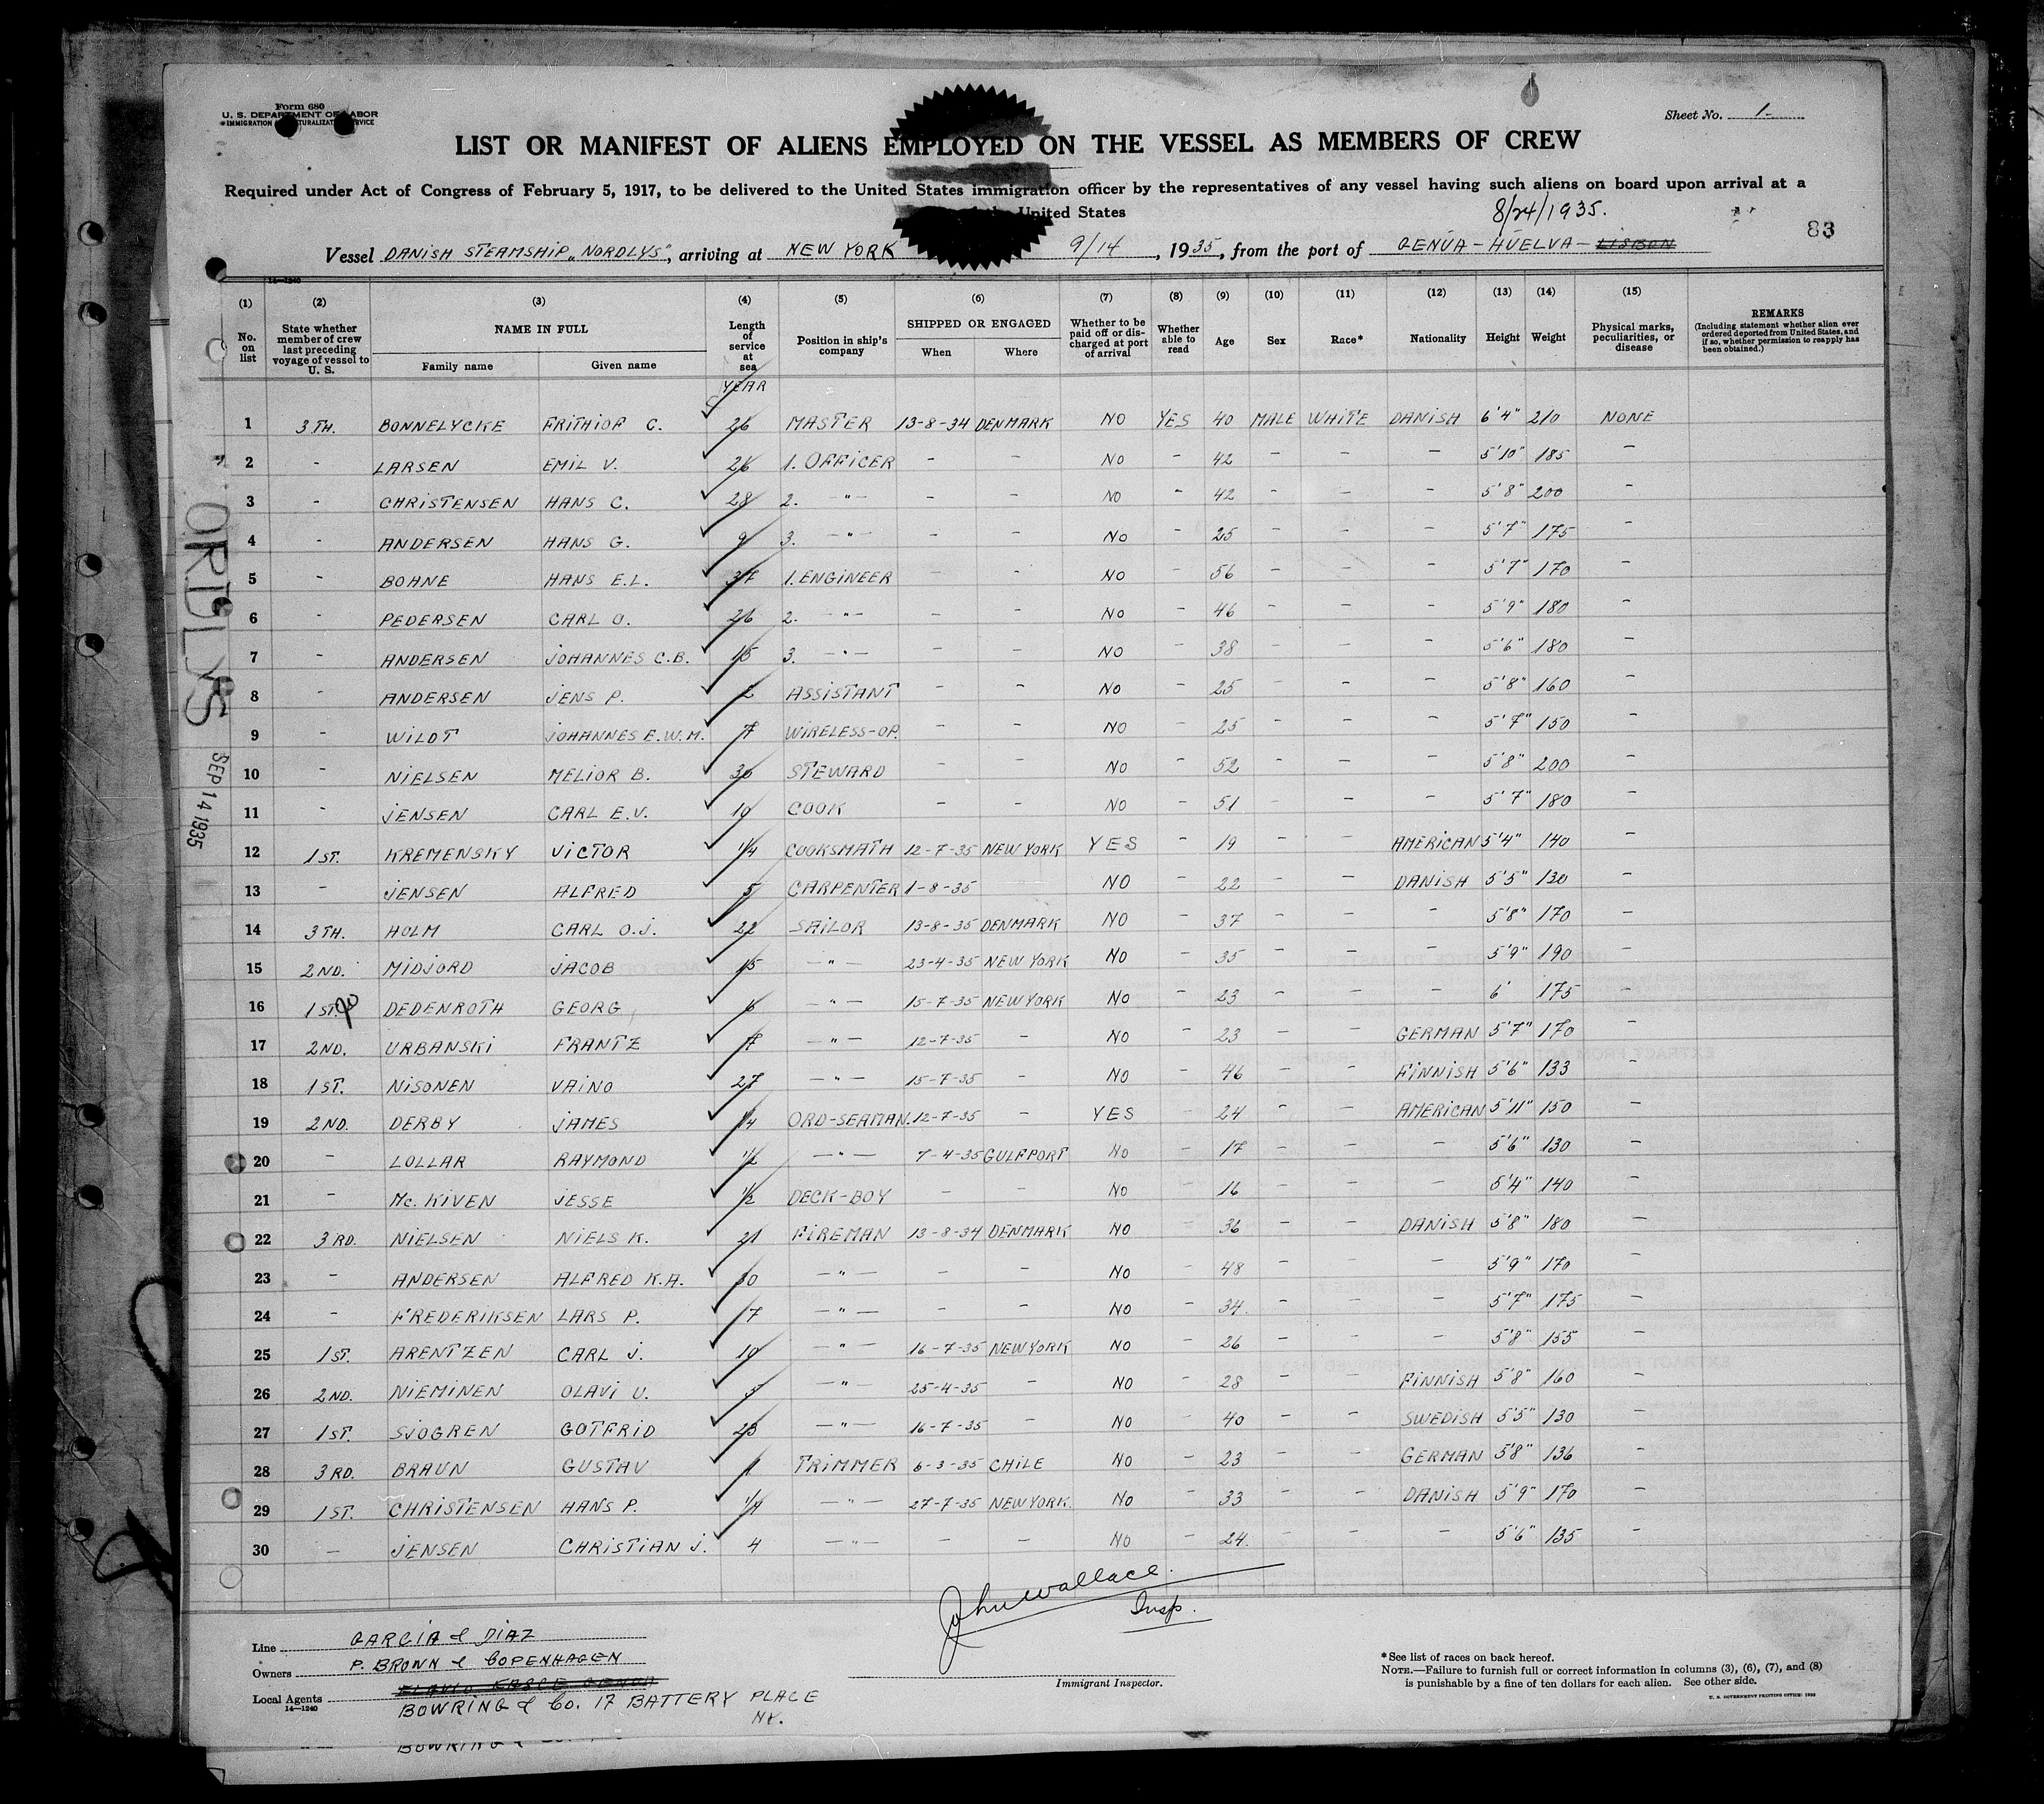 Form 680
U. S. DEPARTMENT OF LABOR
IMMIGRATION NATURALIZATION SERVICE
Sheet No. 1-
LIST OR MANIFEST OF ALIENS EMPLOYED ON THE VESSEL AS MEMBERS OF CREW
Required under Act of Congress of February 5, 1917, to be delivered to the United States immigration officer by the representatives of any vessel having such aliens on board upon arrival at a
the United States
8/24/1935.
83
Vessel DANISH STEAMSHIP „NORDLYS", arriving at NEW YORK 9/14, 1935, from the port of GENUA-HUELVA-LISBON
14-1240
(1) (2) (3) (4) (5) (6) (7) (8) (9) (10) (11) (12) (13) (14) (15)
No. on list
State whether member of crew last preceding voyage of vessel to U. S.
NAME IN FULL
Family name Given name
Length of service at sea
Position in ship's company
SHIPPED OR ENGAGED
When Where
Whether to be paid off or discharged at port of arrival
Whether able to read
Age Sex Race* Nationality Height Weight
Physical marks, peculiarities, or disease
REMARKS
(Including statement whether alien ever ordered deported from United States, and if so, whether permission to reapply has been obtained.)
YEAR
1 3TH. BONNELYCKE FRITHIOF C. 26 MASTER 13-8-34 DENMARK NO YES 40 MALE WHITE DANISH 6'4" 210 NONE
2 - LARSEN EMIL V. 26 1. OFFICER - - NO - 42 - - - 5'10" 185 -
3 - CHRISTENSEN HANS C. 28 2. -"- - - NO - 42 - - - 5'8" 200 -
4 - ANDERSEN HANS G. 9 3. -"- - - NO - 25 - - - 5'7" 175 -
5 - BOHNE HANS E.L. 37 1. ENGINEER - - NO - 56 - - - 5'7" 170 -
6 - PEDERSEN CARL O. 26 2. -"- - - NO - 46 - - - 5'9" 180 -
7 - ANDERSEN JOHANNES C.B. 15 3. -"- - - NO - 38 - - - 5'6" 180 -
8 - ANDERSEN JENS P. 2 ASSISTANT - - NO - 25 - - - 5'8" 160 -
9 - WILDT JOHANNES E.W.M. 7 WIRELESS-OP. - - NO - 25 - - - 5'7" 150 -
10 - NIELSEN MELIOR B. 36 STEWARD - - NO - 52 - - - 5'8" 200 -
11 - JENSEN CARL E.V. 19 COOK - - NO - 51 - - - 5'7" 180 -
12 1ST. KREMENSKY VICTOR 1/4 COOKSMATH 12-7-35 NEW YORK YES - 19 - - AMERICAN 5'4" 140 -
13 - JENSEN ALFRED 5 CARPENTER 1-8-35 NO - 22 - - DANISH 5'5" 130 -
14 3TH. HOLM CARL O.J. 22 SAILOR 13-8-35 DENMARK NO - 37 - - - 5'8" 170 -
15 2ND. MIDJORD JACOB 15 -"- 23-4-35 NEW YORK NO - 35 - - - 5'9" 190 -
16 1ST. DEDENROTH GEORG 6 -"- 15-7-35 NEW YORK NO - 23 - - - 6' 175 -
17 2ND. URBANSKI FRANTZ 7 -"- 12-7-35 - NO - 23 - - GERMAN 5'7" 170 -
18 1ST. NISONEN VAINO 27 -"- 15-7-35 - NO - 46 - - FINNISH 5'6" 133 -
19 2ND. DERBY JAMES 1/4 ORD-SEAMAN. 12-7-35 - YES - 24 - - AMERICAN 5'11" 150 -
20 - LOLLAR RAYMOND 1/2 -"- 7-4-35 GULFPORT NO - 17 - - - 5'6" 130 -
21 - Mc. KIVEN JESSE 1/2 DECK-BOY - - NO - 16 - - - 5'4" 140 -
22 3RD. NIELSEN NIELS K. 21 FIREMAN 13-8-34 DENMARK NO - 36 - - DANISH 5'8" 180 -
23 - ANDERSEN ALFRED K.A. 30 -"- - - NO - 48 - - - 5'9" 170 -
24 - FREDERIKSEN LARS P. 17 -"- - - NO - 34. - - - 5'7" 175 -
25 1ST. ARENTZEN CARL J. 10 -"- 16-7-35 NEW YORK NO - 26 - - - 5'8" 155 -
26 2ND. NIEMINEN OLAVI U. 5 -"- 25-4-35 - NO - 28 - - FINNISH 5'8" 160 -
27 1ST. SJOGREN GOTFRID 23 -"- 16-7-35 - NO - 40 - - SWEDISH 5'5" 130 -
28 3RD. BRAUN GUSTAV 1 TRIMMER 6-3-35 CHILE NO - 23 - - GERMAN 5'8" 136 -
29 1ST. CHRISTENSEN HANS P. 1/4 -"- 27-7-35 NEW YORK. NO - 33 - - DANISH 5'9" 170 -
30 - JENSEN CHRISTIAN J. 4 -"- - - NO - 24. - - - 5'6" 135 -
ORDLYS
SEP 14 1935
John Wallace.
Insp.
Immigrant Inspector.
Line GARCIA & DIAZ
Owners P. BROWN & COPENHAGEN
Local Agents
BOWRING & Co. 17 BATTERY PLACE
NY.
14-1240
*See list of races on back hereof.
NOTE.—Failure to furnish full or correct information in columns (3), (6), (7), and (8)
is punishable by a fine of ten dollars for each alien. See other side.
U. S. GOVERNMENT PRINTING OFFICE: 1933